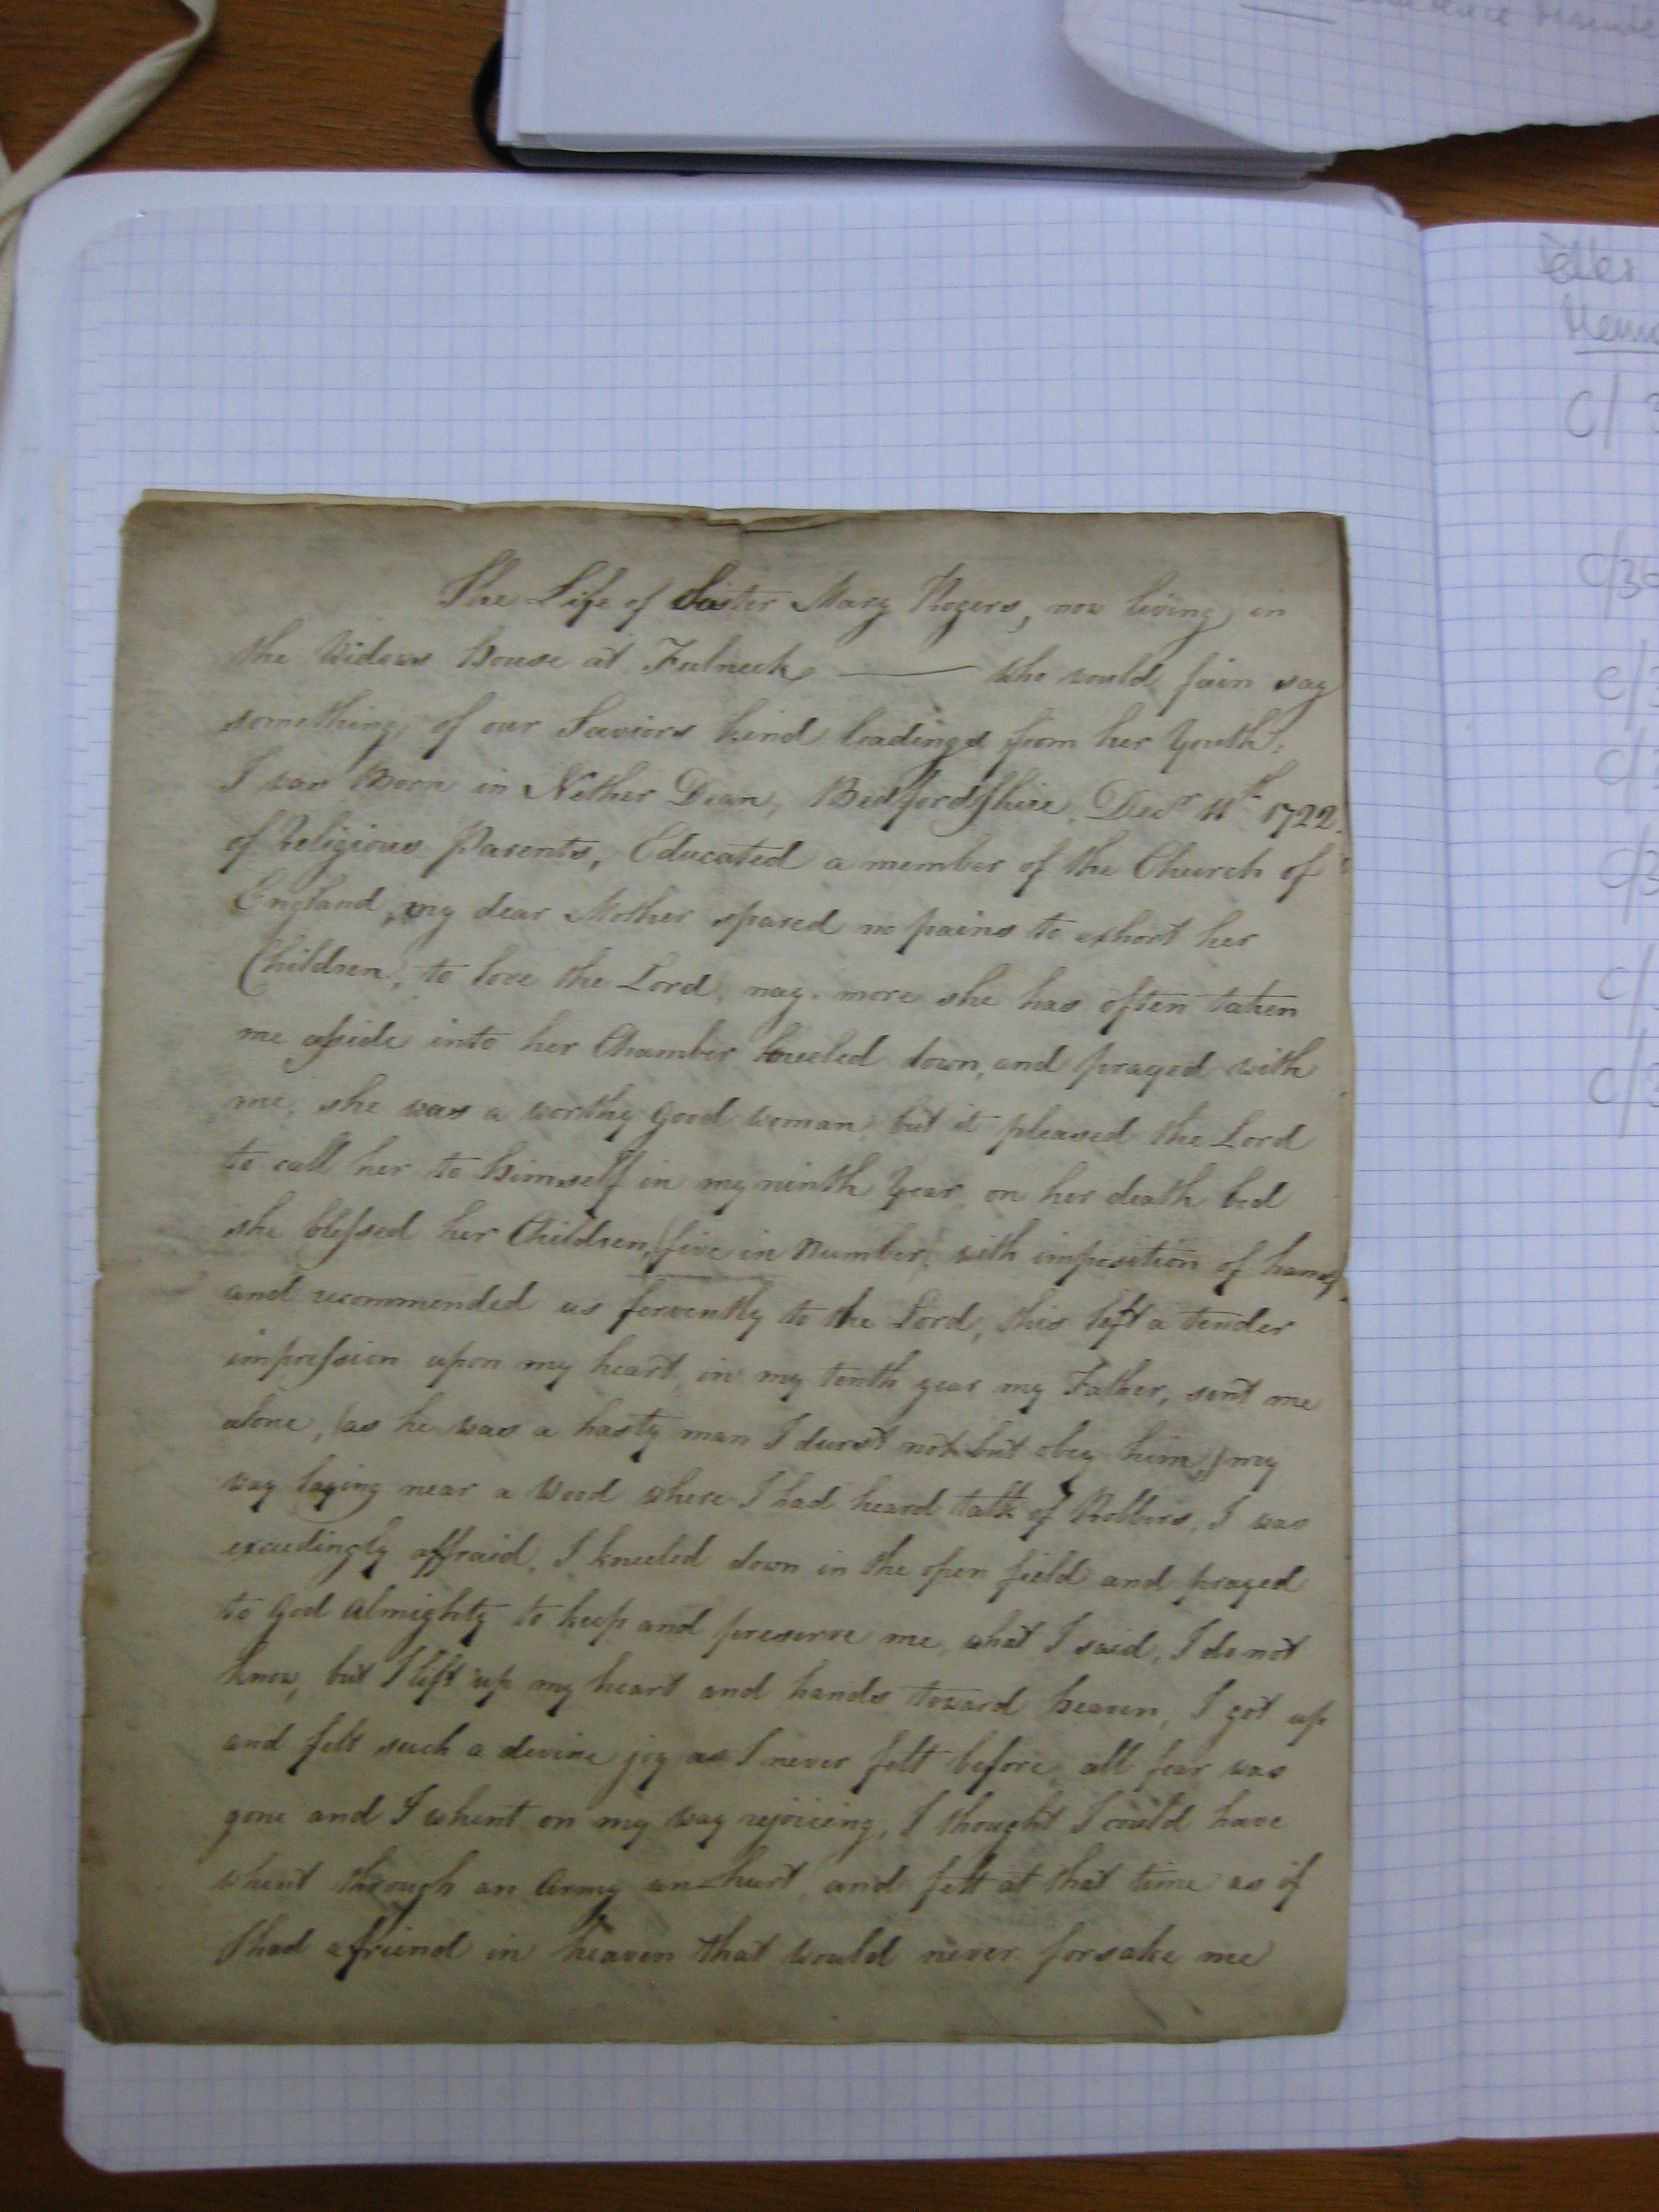 The Life of Sister Mary Rogers, now living in
the Widows House at Fulneck —— who would fain say
something, of our Saviors kind leadings from her Youth.
I was Born in Nether Dean, Bedfordshire, Decr 11th 1722.
of Religious Parents, Educated a member of the Church of
England, my dear Mother spared no pains to exhort her
Children, to love the Lord, nay. more she has often taken
me aside into her Chamber kneeled down, and prayed with
me, she was a worthy good woman, but it pleased the Lord
to call her to himself in my ninth Year, on her death bed
she blessed her Children, (five in Number) with imposition of hands,
and recommended us fervently to the Lord, this left a tender
impression upon my heart, in my tenth year my Father, sent me
alone, (as he was a hasty man I durst not but obey him,) my
way laying near a Wood where I had heard talk of Robbers, I was
exceedingly affraid, I kneeled down in the open field and prayed
to God Almighty to keep and preserve me, what I said, I do not
know, but I lift up my heart and hands toward heaven, I got up
and felt such a devine joy as I never felt before, all fear was
gone and I whent on my way rejoicing, I thought I could have
whent through an Army un-hurt, and felt at that time as if
I had a friend in heaven that would never forsake me
C/3
C/30
C/3
C/3
C/3